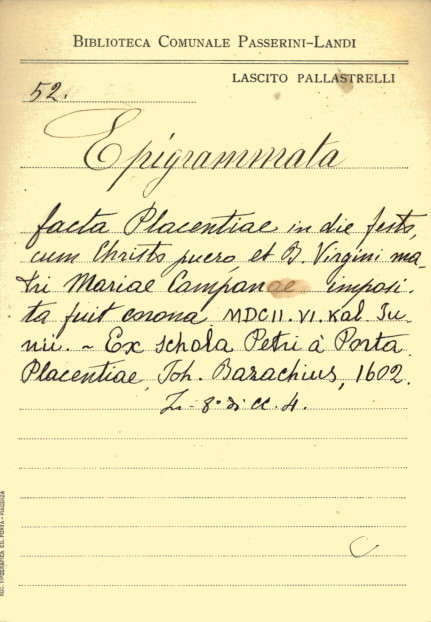 BIBLIOTECA COMUNALE PASSERINI-LANDI
LASCITO PALLASTRELLI
52.
Epigrammata
facta Placentiae in die festo,
cum Christo puero et B. Virgini ma-
tri Mariae Campanae imposi-
ta fuit corona MDCII. VI. Kal. Ju-
nii. ~ Ex schola Petri à Porta
Placentiae, Joh. Bazachius, 1602.
In-8° di cc. 4.
SOC. TIPOGRAFICA ED. PORTA - PIACENZA